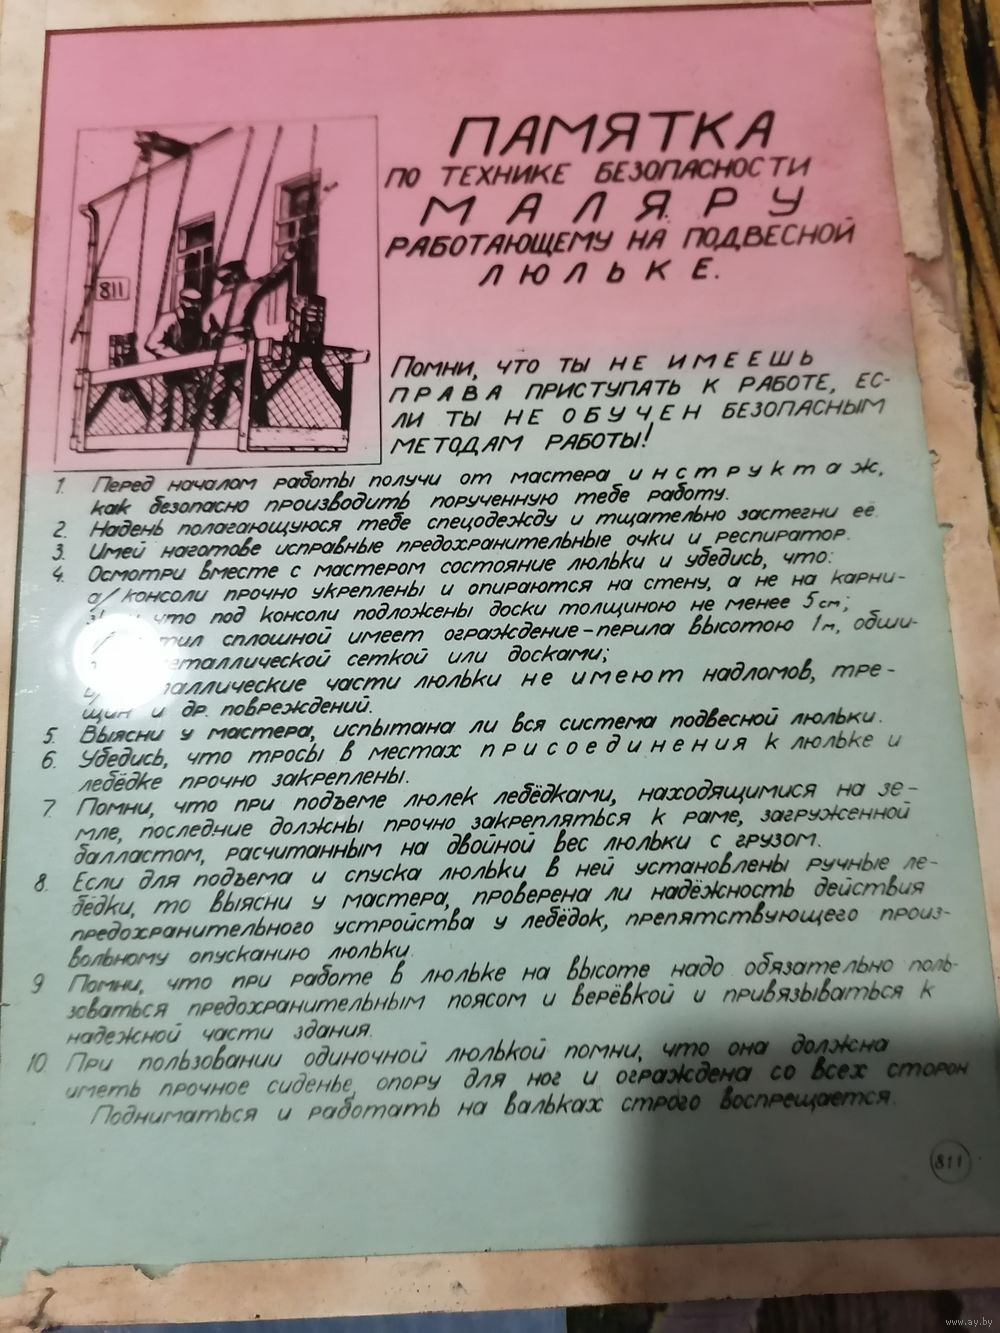 ПАМЯТКА
ПО ТЕХНИКЕ БЕЗОПАСНОСТИ
МАЛЯРУ
РАБОТАЮЩЕМУ НА ПОДВЕСНОЙ
ЛЮЛЬКЕ.
811
Помни, что ты НЕ ИМЕЕШЬ
ПРАВА ПРИСТУПАТЬ К РАБОТЕ, ЕС-
ЛИ ТЫ НЕ ОБУЧЕН БЕЗОПАСНЫМ
МЕТОДАМ РАБОТЫ!
1. Перед началом работы получи от мастера инструктаж,
как безопасно производить порученную тебе работу.
2. Надень полагающуюся тебе спецодежду и тщательно застегни её.
3. Имей наготове исправные предохранительные очки и респиратор.
4. Осмотри вместе с мастером состояние люльки и убедись, что:
а/ консоли прочно укреплены и опираются на стену, а не на карни-
что под консоли подложены доски толщиною не менее 5 см;
сплошной имеет ограждение-перила высотою 1 м, обши-
сеткой или досками;
части люльки не имеют надломов, тре-
щин и др. повреждений.
5. Выясни у мастера, испытана ли вся система подвесной люльки.
6. Убедись, что тросы в местах присоединения к люльке и
лебёдке прочно закреплены.
7. Помни, что при подъеме люлек лебёдками, находящимися на зе-
мле, последние должны прочно закрепляться к раме, загруженной
балластом, расчитанным на двойной вес люльки с грузом.
8. Если для подъема и спуска люльки в ней установлены ручные ле-
бёдки, то выясни у мастера, проверена ли надёжность действия
предохранительного устройства у лебёдок, препятствующего произ-
вольному опусканию люльки.
9 Помни, что при работе в люльке на высоте надо обязательно поль-
зоваться предохранительным поясом и верёвкой и привязываться к
надежной части здания.
10. При пользовании одиночной люлькой помни, что она должна
иметь прочное сиденье, опору для ног и ограждена со всех сторон
Подниматься и работать на вальках строго воспрещается.
811
www.ay.by